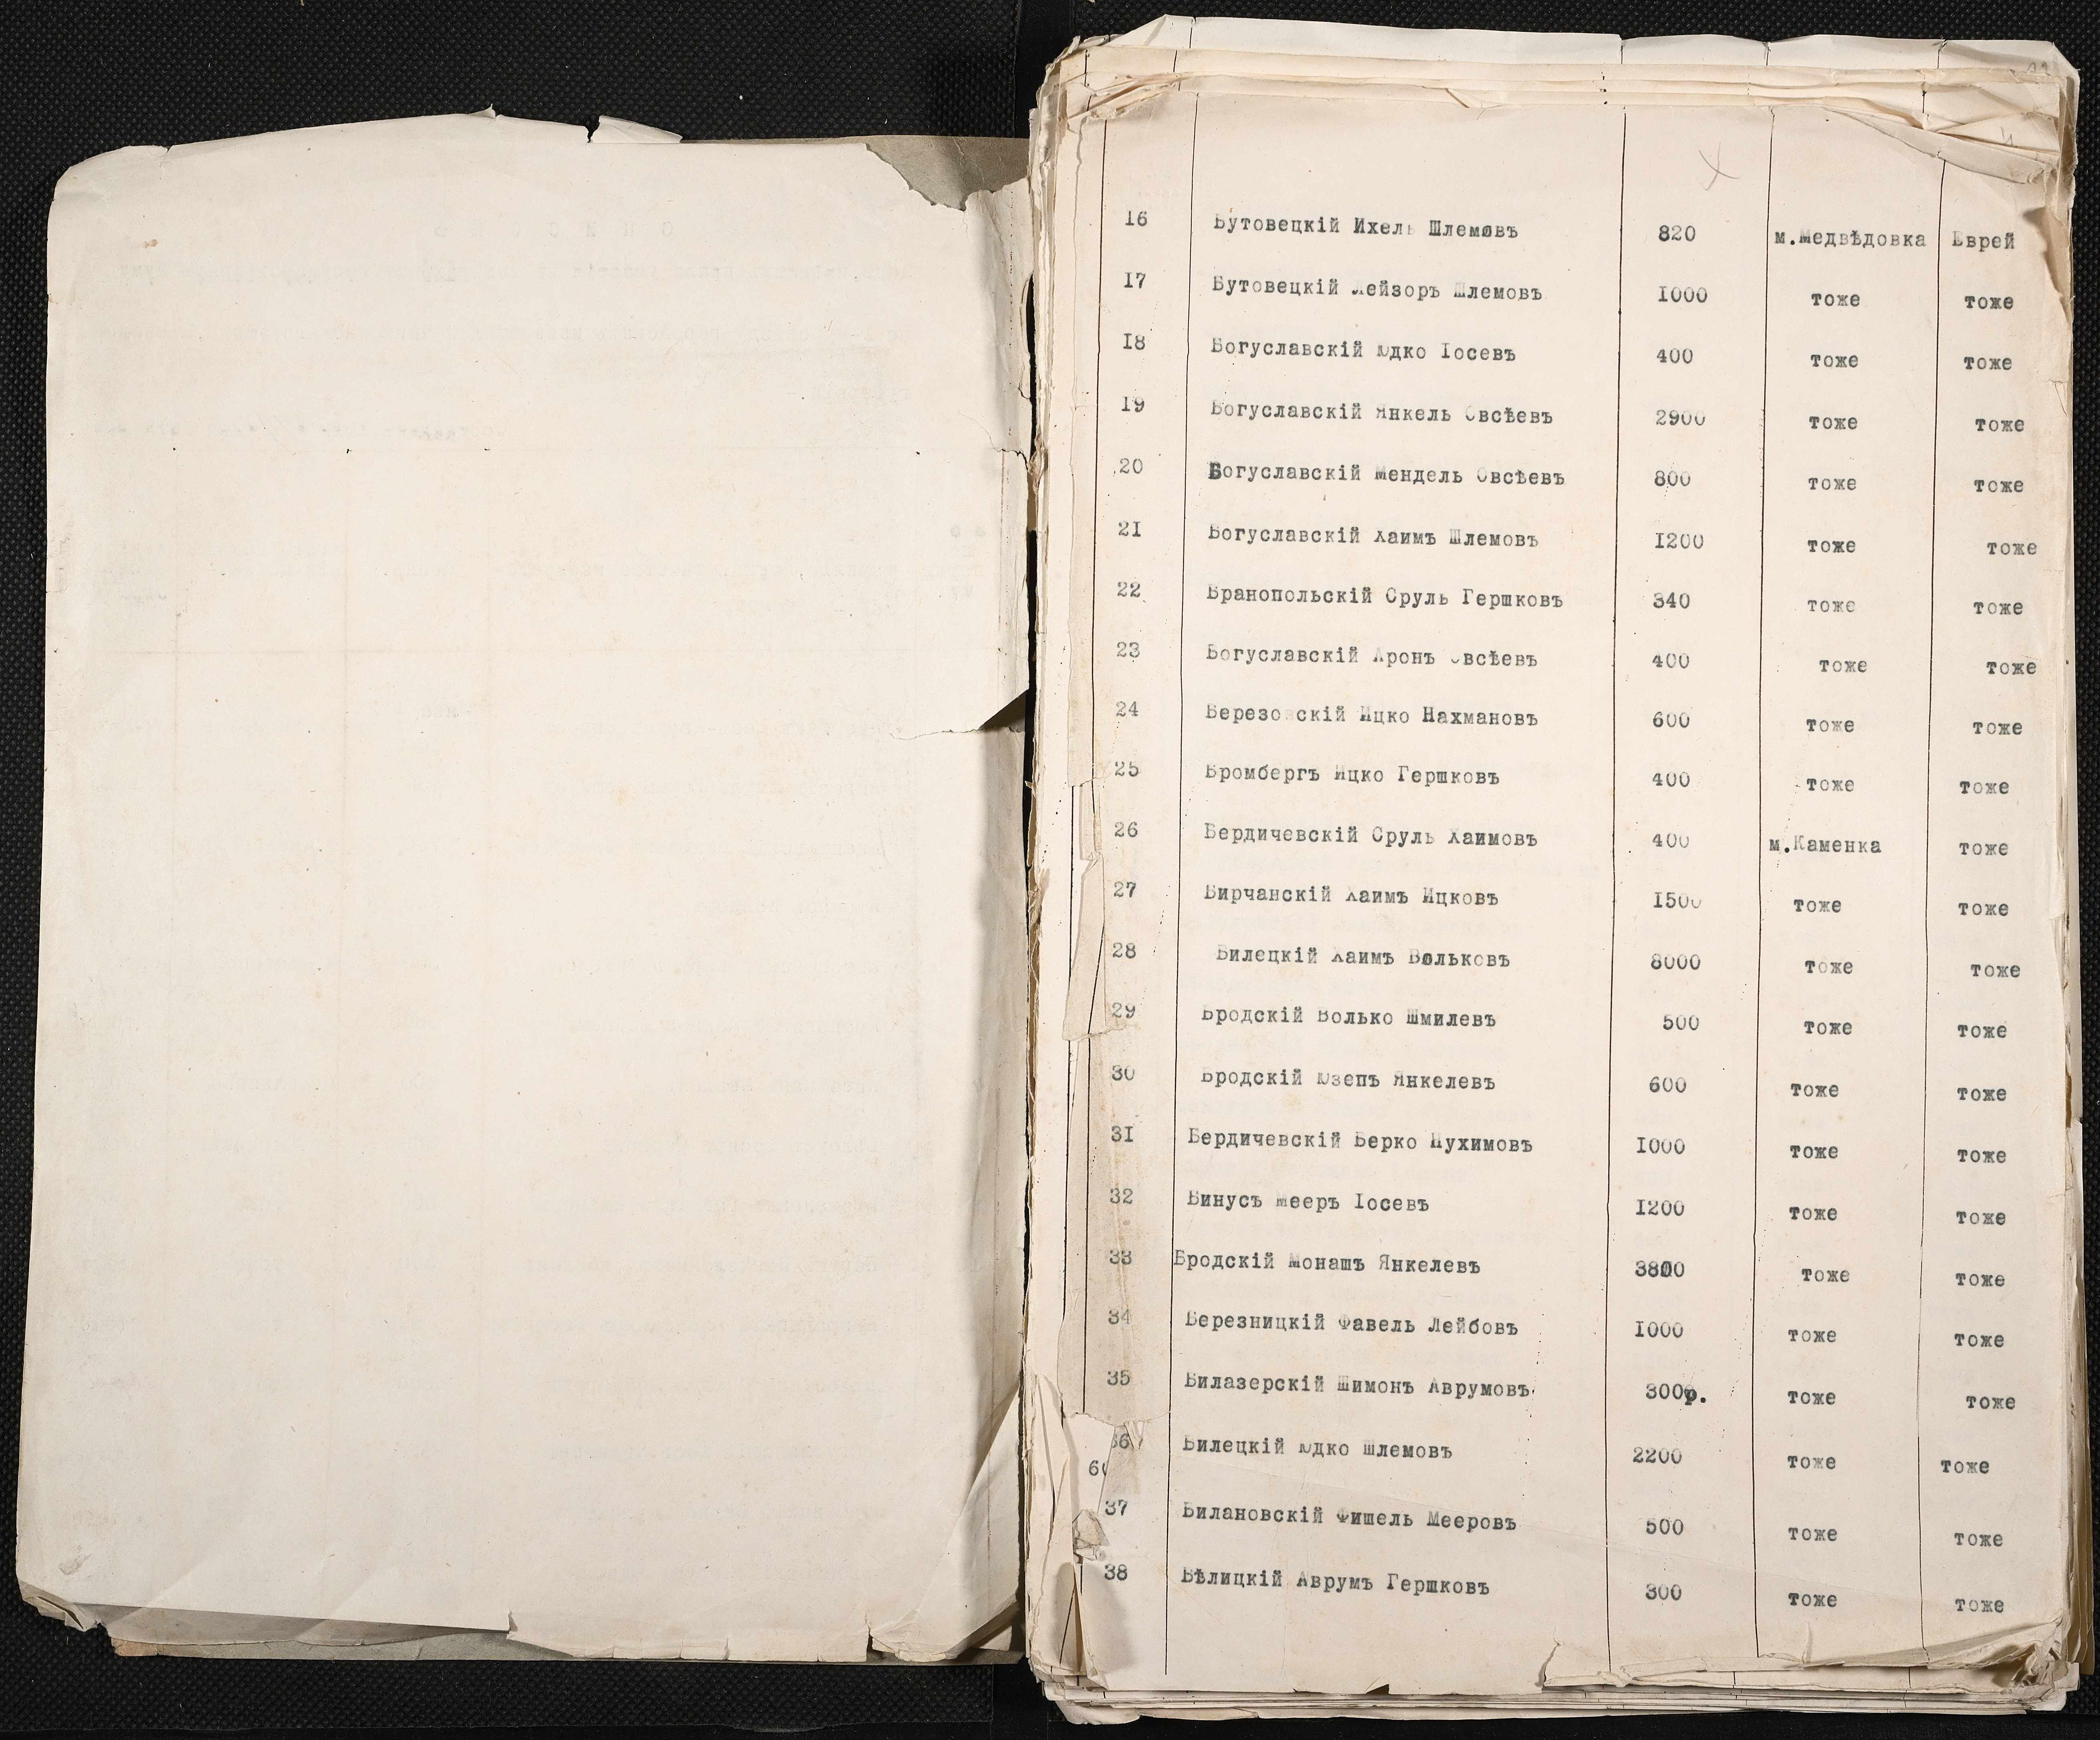 16 Бутовецкій Ихель Шлемовъ 820 м.Медвѣдовка Еврей
17 Бутовецкій Лейзоръ Шлемовъ 1000 тоже тоже
18 Богуславскій Юдко Іосевъ 400 тоже тоже
19 Богуславскій Янкель Овсѣевъ 2900 тоже тоже
20 Богуславскій Мендель Овсѣевъ 800 тоже тоже
21 Богуславскій Хаимъ Шлемовъ 1200 тоже тоже
22 Бранопольскій Сруль Гершковъ 340 тоже тоже
23 Богуславскій Аронъ Овсѣевъ 400 тоже тоже
24 Березовскій Ицко Нахмановъ 600 тоже тоже
25 Бромбергъ Ицко Гершковъ 400 тоже тоже
26 Бердичевскій Сруль Хаимовъ 400 м.Каменка тоже
27 Бирчанскій Хаимъ Ицковъ 1500 тоже тоже
28 Билецкій Хаимъ Вольковъ 8000 тоже тоже
29 Бродскій Волько Шмилевъ 500 тоже тоже
30 Бродскій Юзепъ Янкелевъ 600 тоже тоже
31 Бердичевскій Берко Нухимовъ 1000 тоже тоже
32 Бинусъ Мееръ Іосевъ 1200 тоже тоже
33 Бродскій Монашъ Янкелевъ 3800 тоже тоже
34 Березницкій Фавель Лейбовъ 1000 тоже тоже
35 Билазерскій Шимонъ Аврумовъ 300р. тоже тоже
36 Билецкій Юдко Шлемовъ 2200 тоже тоже
37 Билановскій Фишель Мееровъ 500 тоже тоже
38 Бѣлицкій Аврумъ Гершковъ 300 тоже тоже